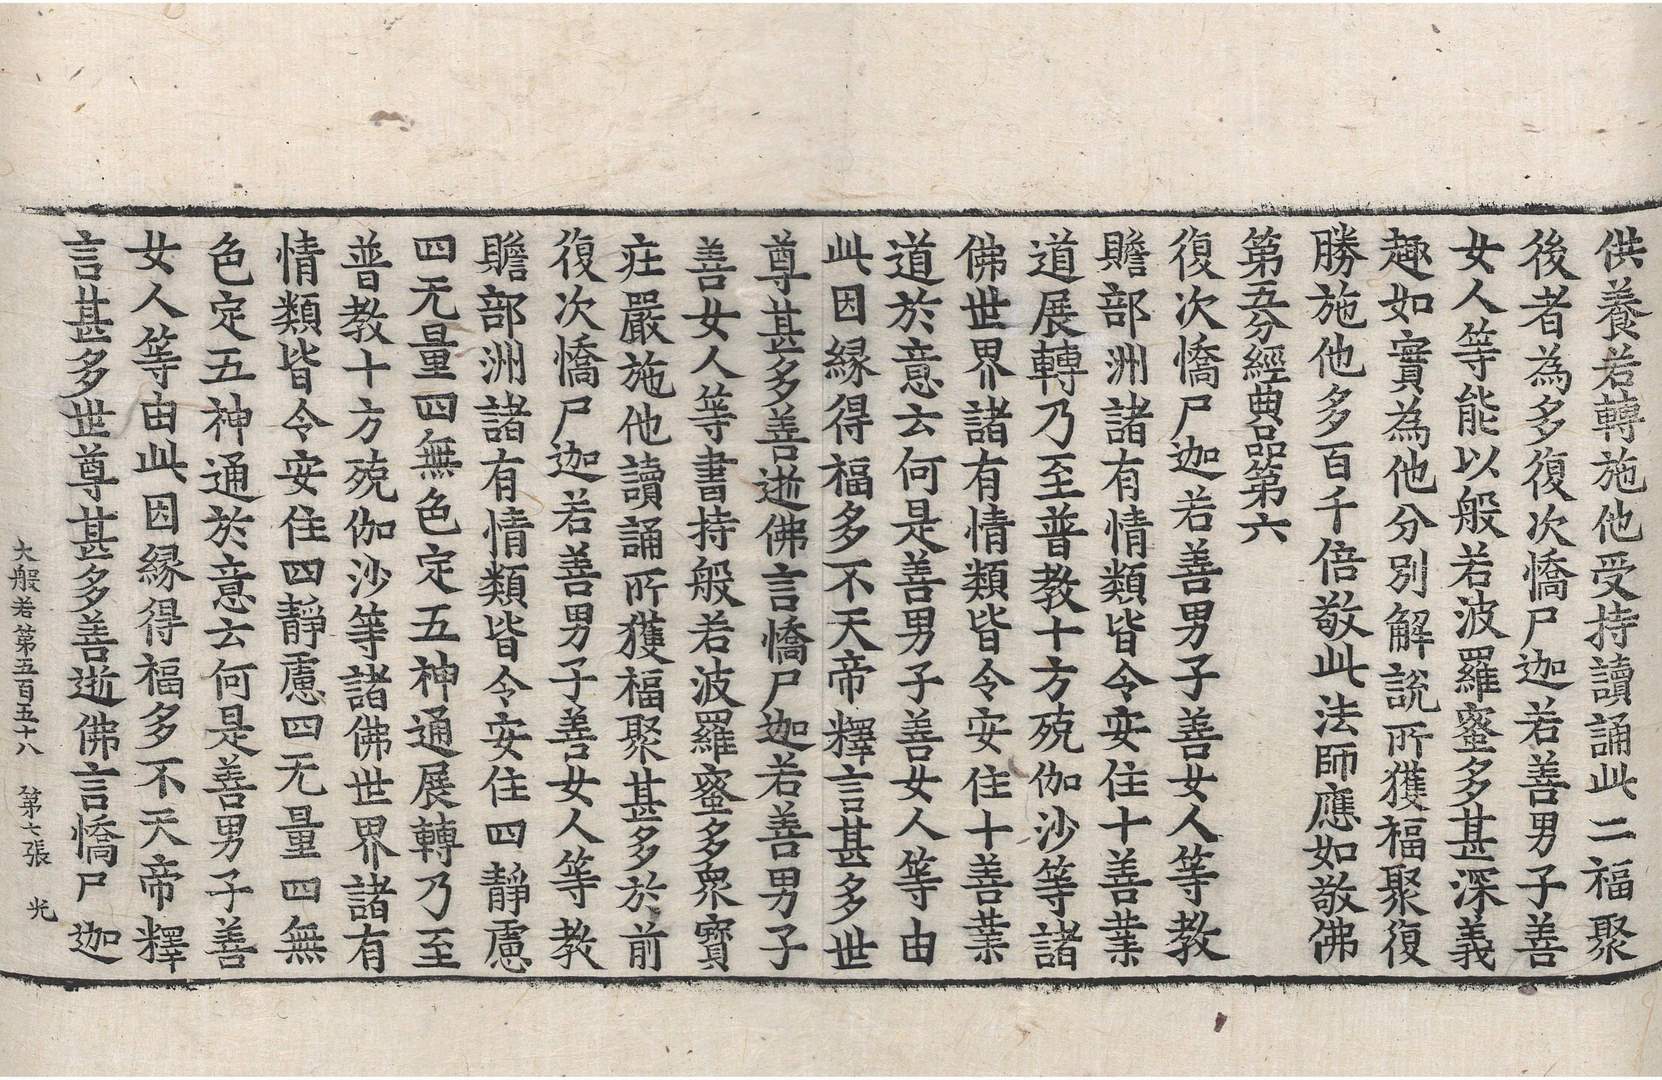 供養若轉施他受持讀誦此二福聚
後者為多復次憍尸迦若善男子善
女人等能以般若波羅蜜多甚深義
趣如實為他分別解說所獲福聚復
勝施他多百千倍敬此法師應如敬佛
第五分經典品第六
復次憍尸迦若善男子善女人等教
贍部洲諸有情類皆令安住十善業
道展轉乃至普教十方殑伽沙等諸
佛世界諸有情類皆令安住十善業
道於意云何是善男子善女人等由
此因緣得福多不天帝釋言甚多世
尊甚多善逝佛言憍尸迦若善男子
善女人等書持般若波羅蜜多眾寶
莊嚴施他讀誦所獲福聚甚多於前
復次憍尸迦若善男子善女人等教
贍部洲諸有情類皆令安住四靜慮
四无量四無色定五神通展轉乃至
普教十方殑伽沙等諸佛世界諸有
情類皆令安住四靜慮四无量四無
色定五神通於意云何是善男子善
女人等由此因緣得福多不天帝釋
言甚多世尊甚多善逝佛言憍尸迦
大般若第五百五十八 第七張 光